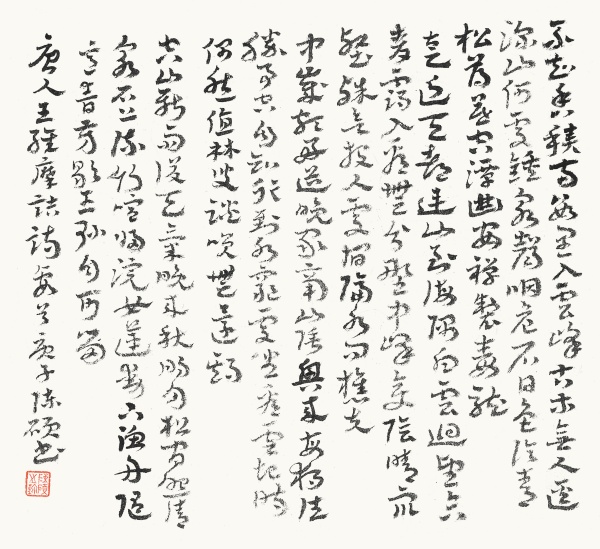 不知香積寺數里入雲峰古木無人逕
深山何處鐘泉聲咽危石日色冷青
松薄暮空潭曲安禪製毒龍
太乙近天都連山到海隅白雲迴望合
青靄入看無分野中峰變陰晴眾
壑殊欲投人處宿隔水問樵夫
中歲頗好道晚家南山陲興來每獨往
勝事空自知行到水窮處坐看雲起時
偶然值林叟談笑無還期
空山新雨後天氣晚來秋明月松間照清
泉石上流竹喧歸浣女蓮動下漁舟隨
意春芳歇王孫自可留
唐人王維摩詰詩數首庚子陳碩書